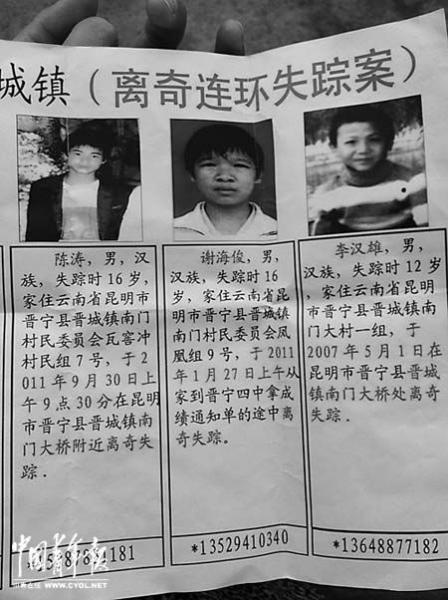 城镇（离奇连环失踪案）
陈涛，男，汉
族，失踪时16岁，
家住云南省昆明市
晋宁县晋城镇南门
村民委员会瓦窑冲
村民组7号，于2
011年9月30日上
午9点30分在昆明
市晋宁县晋城镇南
门大桥附近离奇失
踪．
谢海俊，男，
汉族，失踪时16
岁，家住云南省昆
明市晋宁县晋城镇
南门村民委员会凤
凰组9号，于2011
年1月27日上午从
家到晋宁四中拿成
绩通知单的途中离
奇失踪。
*13529410340
李汉雄，男，
汉族，失踪时12岁
，家住云南省昆明市
晋宁县晋城镇南
门大村一组，于
2007年5月1日在
昆明市晋宁县晋城
镇南门大桥处离奇
失踪．
*13648877182
中国青年报
中青在线 WWW.CYOL.NET